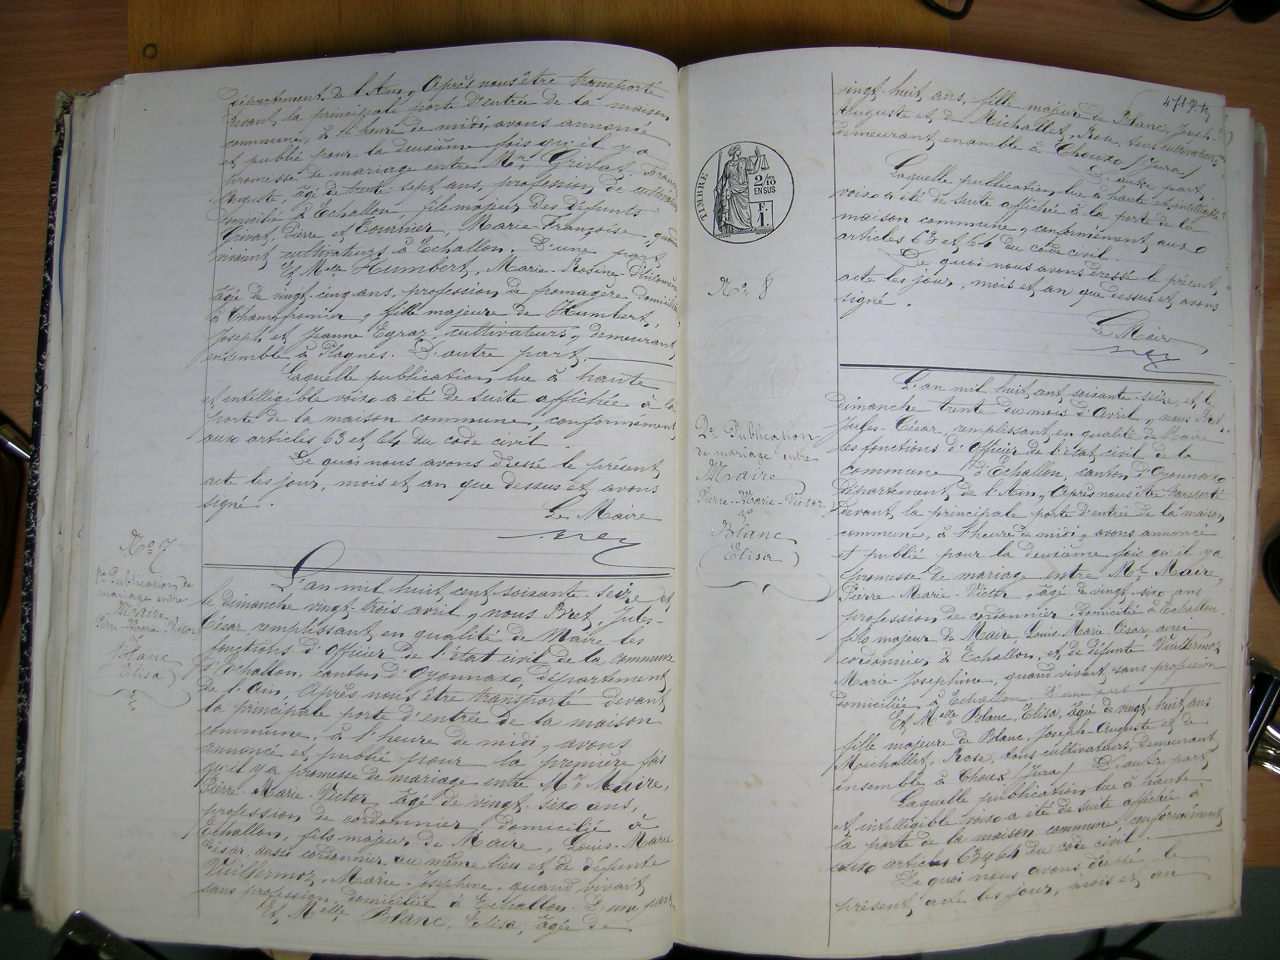 département de l'Ain, Après nous être transporté
devant la principale porte d'entrée de la maison
commune, à l'heure de midi, avons annoncé
et publié pour la deuxième fois qu'il y a
promesse de mariage entre Mr
Auguste, âgé de trente sept ans, profession de cultivateur
domicilié à Echallon, fils majeur des défunts
Pierre et Marie-Françoise, quand
vivant, cultivateurs à Echallon. D'une part
Et Melle Humbert, Marie-Rosine
âgé de vingt cinq ans, profession de fromagère domiciliée
à Champfromier, fille majeure de Humbert,
Joseph et Jeanne cultivateurs, demeurant
ensemble à Plagnes. D'autre part.
Laquelle publication, lue à haute
et intelligible voix a été de suite affichée à la
porte de la maison commune, conformément
aux articles 63 et 64 du code civil.
De quoi nous avons dressé le présent
acte les jour, mois et an que dessus et avons
signé.
Le Maire
No 7
1e Publication de
mariage entre
Maire
Pierre-Marie-Victor
et
Blanc
Elisa
L'an mil huit cent soixante seize et
le dimanche vingt-trois avril, nous Jules-
César remplissant en qualité de Maire les
fonctions d'Officier de l'état civil de la commune
d'Echallon, canton d'Oyonnax, département
de l'Ain, Après nous être transporté devant
la principale porte d'entrée de la maison
commune, à l'heure de midi, avons
annoncé et publié pour la première fois
qu'il y a promesse de mariage entre Mr Maire,
Pierre-Marie-Victor, âgé de vingt six ans,
profession de cordonnier, domicilié à
Echallon, fils majeur de Maire, Louis-Marie
César, aussi cordonnier au même lieu et de défunte
Vuillermoz, Marie-Joséphine, quand vivait
sans profession, domiciliée à Echallon. D'une part
Et Melle Blanc, Elisa, âgée de
vingt huit ans, fille majeure de Blanc, Joseph
Auguste et de Michallet, Rose, tous cultivateurs
demeurant ensemble à Choux (Jura)
D'autre part.
Laquelle publication, lue à haute et intelligible
voix a été de suite affichée à la porte de la
maison commune, conformément, aux
articles 63 et 64 du code civil.
De quoi nous avons dressé le présent
acte les jour, mois et an que dessus et avons
signé.
Le Maire
TIMBRE
2/10
EN SUS
F.
1
No 8
2e Publication
de mariage entre
Maire
Pierre-Marie-Victor
et
Blanc
Elisa
L'an mil huit cent soixante seize, et le
dimanche trente du mois d'Avril, nous
Jules-César, remplissant en qualité de Maire
les fonctions d'Officier de l'état civil de la
commune d'Echallon, canton d'Oyonnax
département de l'Ain, Après nous être transporté
devant la principale porte d'entrée de la maison
commune, à l'heure de midi, avons annoncé
et publié pour la deuxième fois qu'il y a
promesse de mariage entre Mr Maire,
Pierre-Marie-Victor, âgé de vingt-six ans
profession de cordonnier domicilié à Echallon
fils majeur de Maire, Louis Marie César, aussi
cordonnier à Echallon, et de défunte Vuillermoz
Marie Joséphine, quand vivait sans profession
domiciliée à Echallon. D'une part
Et Melle Blanc, Elisa, âgée de vingt huit ans
fille majeure de Blanc, Joseph-Auguste et de
Michallet, Rose, tous cultivateurs, demeurant
ensemble à Choux (Jura) D'autre part
Laquelle publication lue à haute
et intelligible voix a été de suite affichée à
la porte de la maison commune conformément
aux articles 63 et 64 du code civil.
De quoi nous avons dressé le
présent acte les jour, mois et an